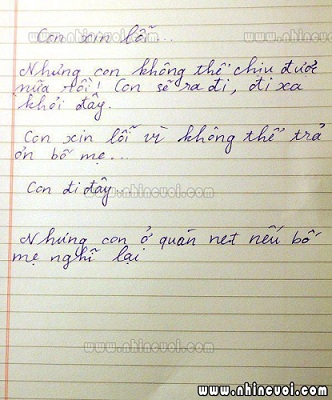 Con xin lỗi...
www.nhincuoi.com
Nhưng con không thể chịu được
nữa rồi! Con sẽ ra đi, đi xa
khỏi đây.
Con xin lỗi vì không thể trả
ơn bố mẹ...
Con đi đây...
Nhưng con ở quán net nếu bố
mẹ nghĩ lại
www.nhincuoi.com
www.nhincuoi.com